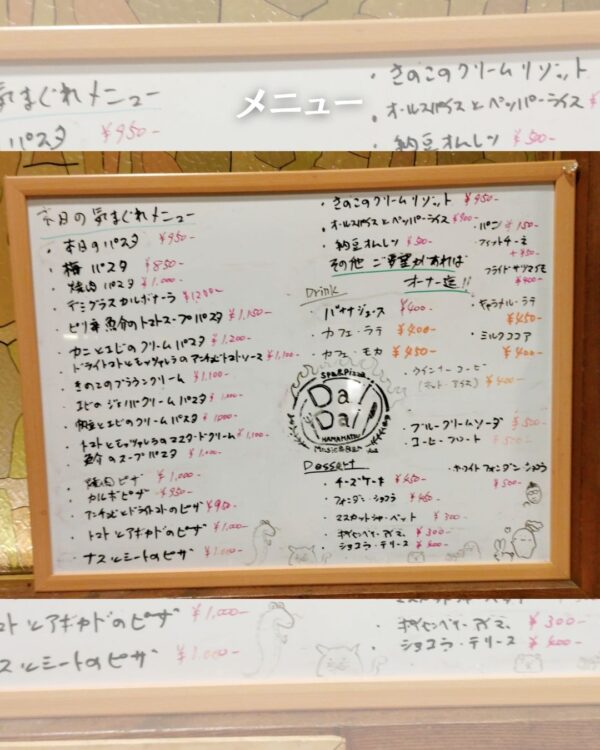 気まぐれメニュー
パスタ ¥950-
・きのこのクリームリゾット
・オールスパイスとペッパーライス
・納豆オムレツ ¥500-
メニュー
本日の気まぐれメニュー
・本日のパスタ ¥950-
・梅パスタ ¥850-
・焼肉パスタ ¥1.000-
・デミグラスカルボナーラ ¥1200-
・ピリ辛魚介のトマトスープパスタ ¥1,150-
・カニとエビのクリームパスタ ¥1,200-
・ドライトマトとモッツァレラのアンチョビトマトソース ¥1,100-
・きのこのブラウンクリーム ¥1,100-
・エビのジェノバクリームパスタ ¥1,000-
・納豆とエビのクリームパスタ ¥1000-
・トマトとモッツァレラのマスタードクリーム ¥1,100-
・魚介のスープパスタ ¥1,000-
・焼肉ピザ ¥1,000-
・カルボピザ ¥950-
・アンチョビとドライトマトのピザ ¥950-
・トマトとアボカドのピザ ¥1,000-
・ナスとミートのピザ ¥1,000-
・きのこのクリームリゾット ¥950-
・オールスパイスとペッパーライス ¥900-
・納豆オムレツ ¥500-
その他ご要望があれば
オーナー迄!!
・パン ¥150-
・フィットチーネ
+¥50-
・フライドサツマイモ
¥400-
Drink
・バナナジュース ¥400-
・カフェ・ラテ ¥400-
・カフェ・モカ ¥450-
・キャラメル・ラテ
¥450-
・ミルクココア
¥400-
・ウインナーコーヒー
(ホット アイス) ¥400-
・ブルークリームソーダ ¥500-
・コーヒーフロート ¥500-
Spa&Pizza
Dai
Dai
HAMAMATSU
Music&Bar
Dessert
・チーズケーキ ¥450-
・フォンダン・ショコラ ¥450-
・マスカットシャーベット ¥300-
・ショコラ・テリーヌ ¥400-
・ホワイトフォンダンショコラ
¥500-
トマトとアボカドのピザ ¥1,000-
ナスとミートのピザ ¥1,000-
・ショコラ・テリーヌ ¥400-